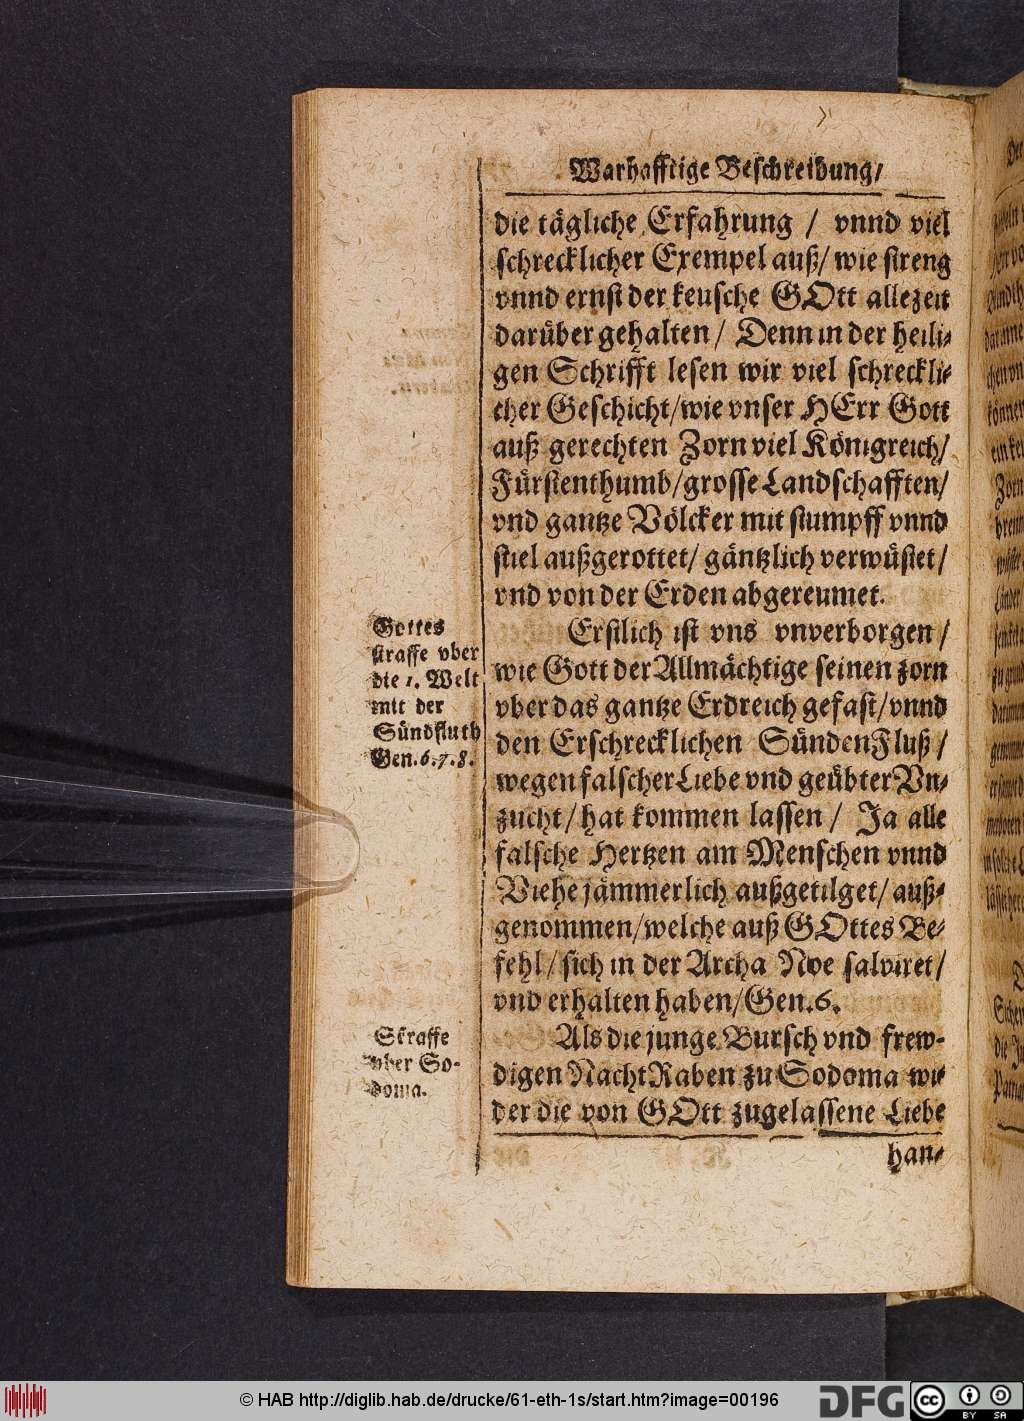 Warhafftige Beschreibung/
die tägliche Erfahrung / vnnd viel
schrecklicher Exempel auß/ wie streng
vnnd ernst der keusche GOtt allezeit
darüber gehalten / Denn in der heili-
gen Schrifft lesen wir viel schreckli-
cher Geschicht/wie vnser HErr Gott
auß gerechten Zorn viel Königreich/
Fürstenthumb/grosse Landschafften/
vnd gantze Völcker mit stumpff vnnd
stiel außgerottet/ gäntzlich verwüstet/
vnd von der Erden abgereumet.
Erstlich ist vns vnverborgen /
wie Gott der Allmächtige seinen zorn
vber das gantze Erdreich gefast/vnnd
den Erschrecklichen SündenFluß/
wegen falscher Liebe vnd geübter Vn-
zucht/hat kommen lassen / Ja alle
falsche Hertzen am Menschen vnnd
Viehe jämmerlich außgetilget/ auß-
genommen/welche auß GOttes Be-
fehl/sich in der Archa Noe salviret/
vnd erhalten haben/Gen.6.
Als die junge Bursch vnd frew-
digen NachtRaben zu Sodoma wi-
der die von GOtt zugelassene Liebe
han-
Gottes
straffe vber
die 1. Welt
mit der
Sündfluth
Gen.6.7.8.
Straffe
vber So-
doma.
© HAB http://diglib.hab.de/drucke/61-eth-1s/start.htm?image=00196
DFG
cc BY SA